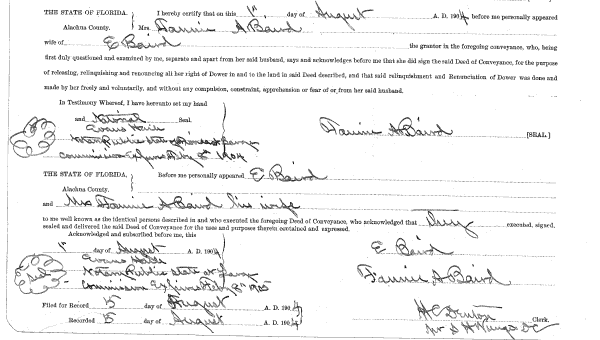 THE STATE OF FLORIDA. I hereby certify that on this 1st day of August A. D. 1904 before me personally appeared
Alachua County. Mrs. Fannie A Baird
wife of E Baird the grantor in the foregoing conveyance, who, being
first duly questioned and examined by me, separate and apart from her said husband, says and acknowledges before me that she did sign the said Deed of Conveyance, for the purpose
of releasing, relinquishing and renouncing all her right of Dower in and to the land in said Deed described, and that said relinquishment and Renunciation of Dower was done and
made by her freely and voluntarily, and without any compulsion, constraint, apprehension or fear of or from her said husband.
In Testimony Whereof, I have hereunto set my hand
and Notarial Seal.
Evans Haile Fannie A Baird [SEAL]
Notary Public State at Large
Commission Expires Feby 8th
THE STATE OF FLORIDA. Before me personally appeared E Baird
Alachua County.
and Mrs Fannie A Baird his wife
to me well known as the identical persons described in and who executed the foregoing Deed of Conveyance, who acknowledged that they executed, signed,
sealed and delivered the said Deed of Conveyance for the uses and purposes therein contained and expressed.
Acknowledged and subscribed before me, this
1st day of August A. D. 1904 E Baird
Evans Haile
Notary Public State at Large Fannie A Baird
Commission Expires Feby 8th
Filed for Record 15 day of August A. D. 1904
Recorded 15 day of August A. D. 1904 Clerk.